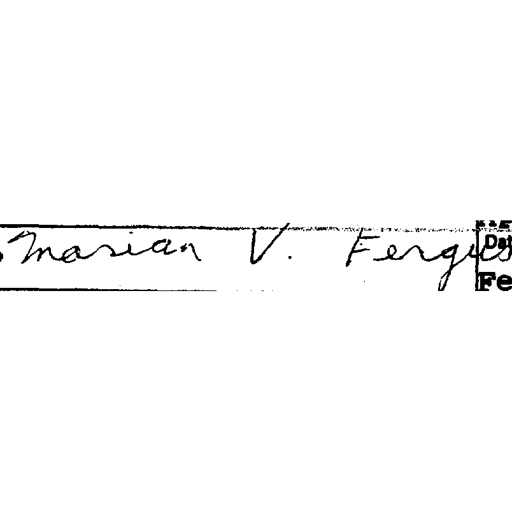 Marian V. Fergus
Dat
Fe